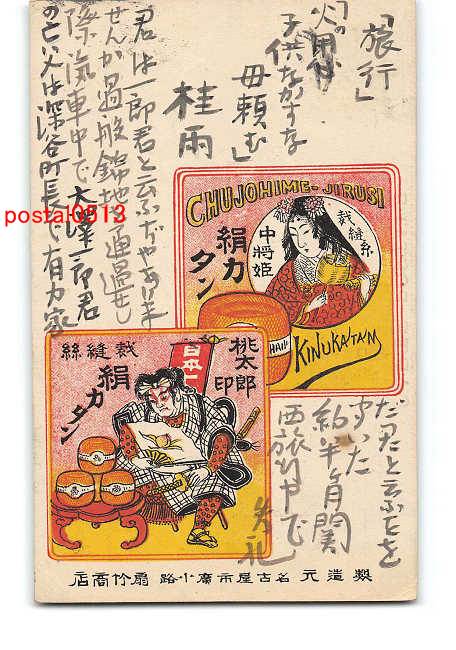 「旅行」
火の用心
子供なかすな
母頼む」
桂雨
君は一郎君と云ふ
せんか過般錦地通過せし
際汽車中で大澤一郎君
の亡父は深谷町長で有力家
だつたと云ふことを
約半ヶ月関
西旅行中で
失礼
CHUJOHIME-JIRUSI
裁縫糸
中將姫
絹カタン
KINUKATAM
桃太郎印
日本一
裁縫絲
絹カタン
製造元 名古屋市廣小路 扇竹商店
postal0513